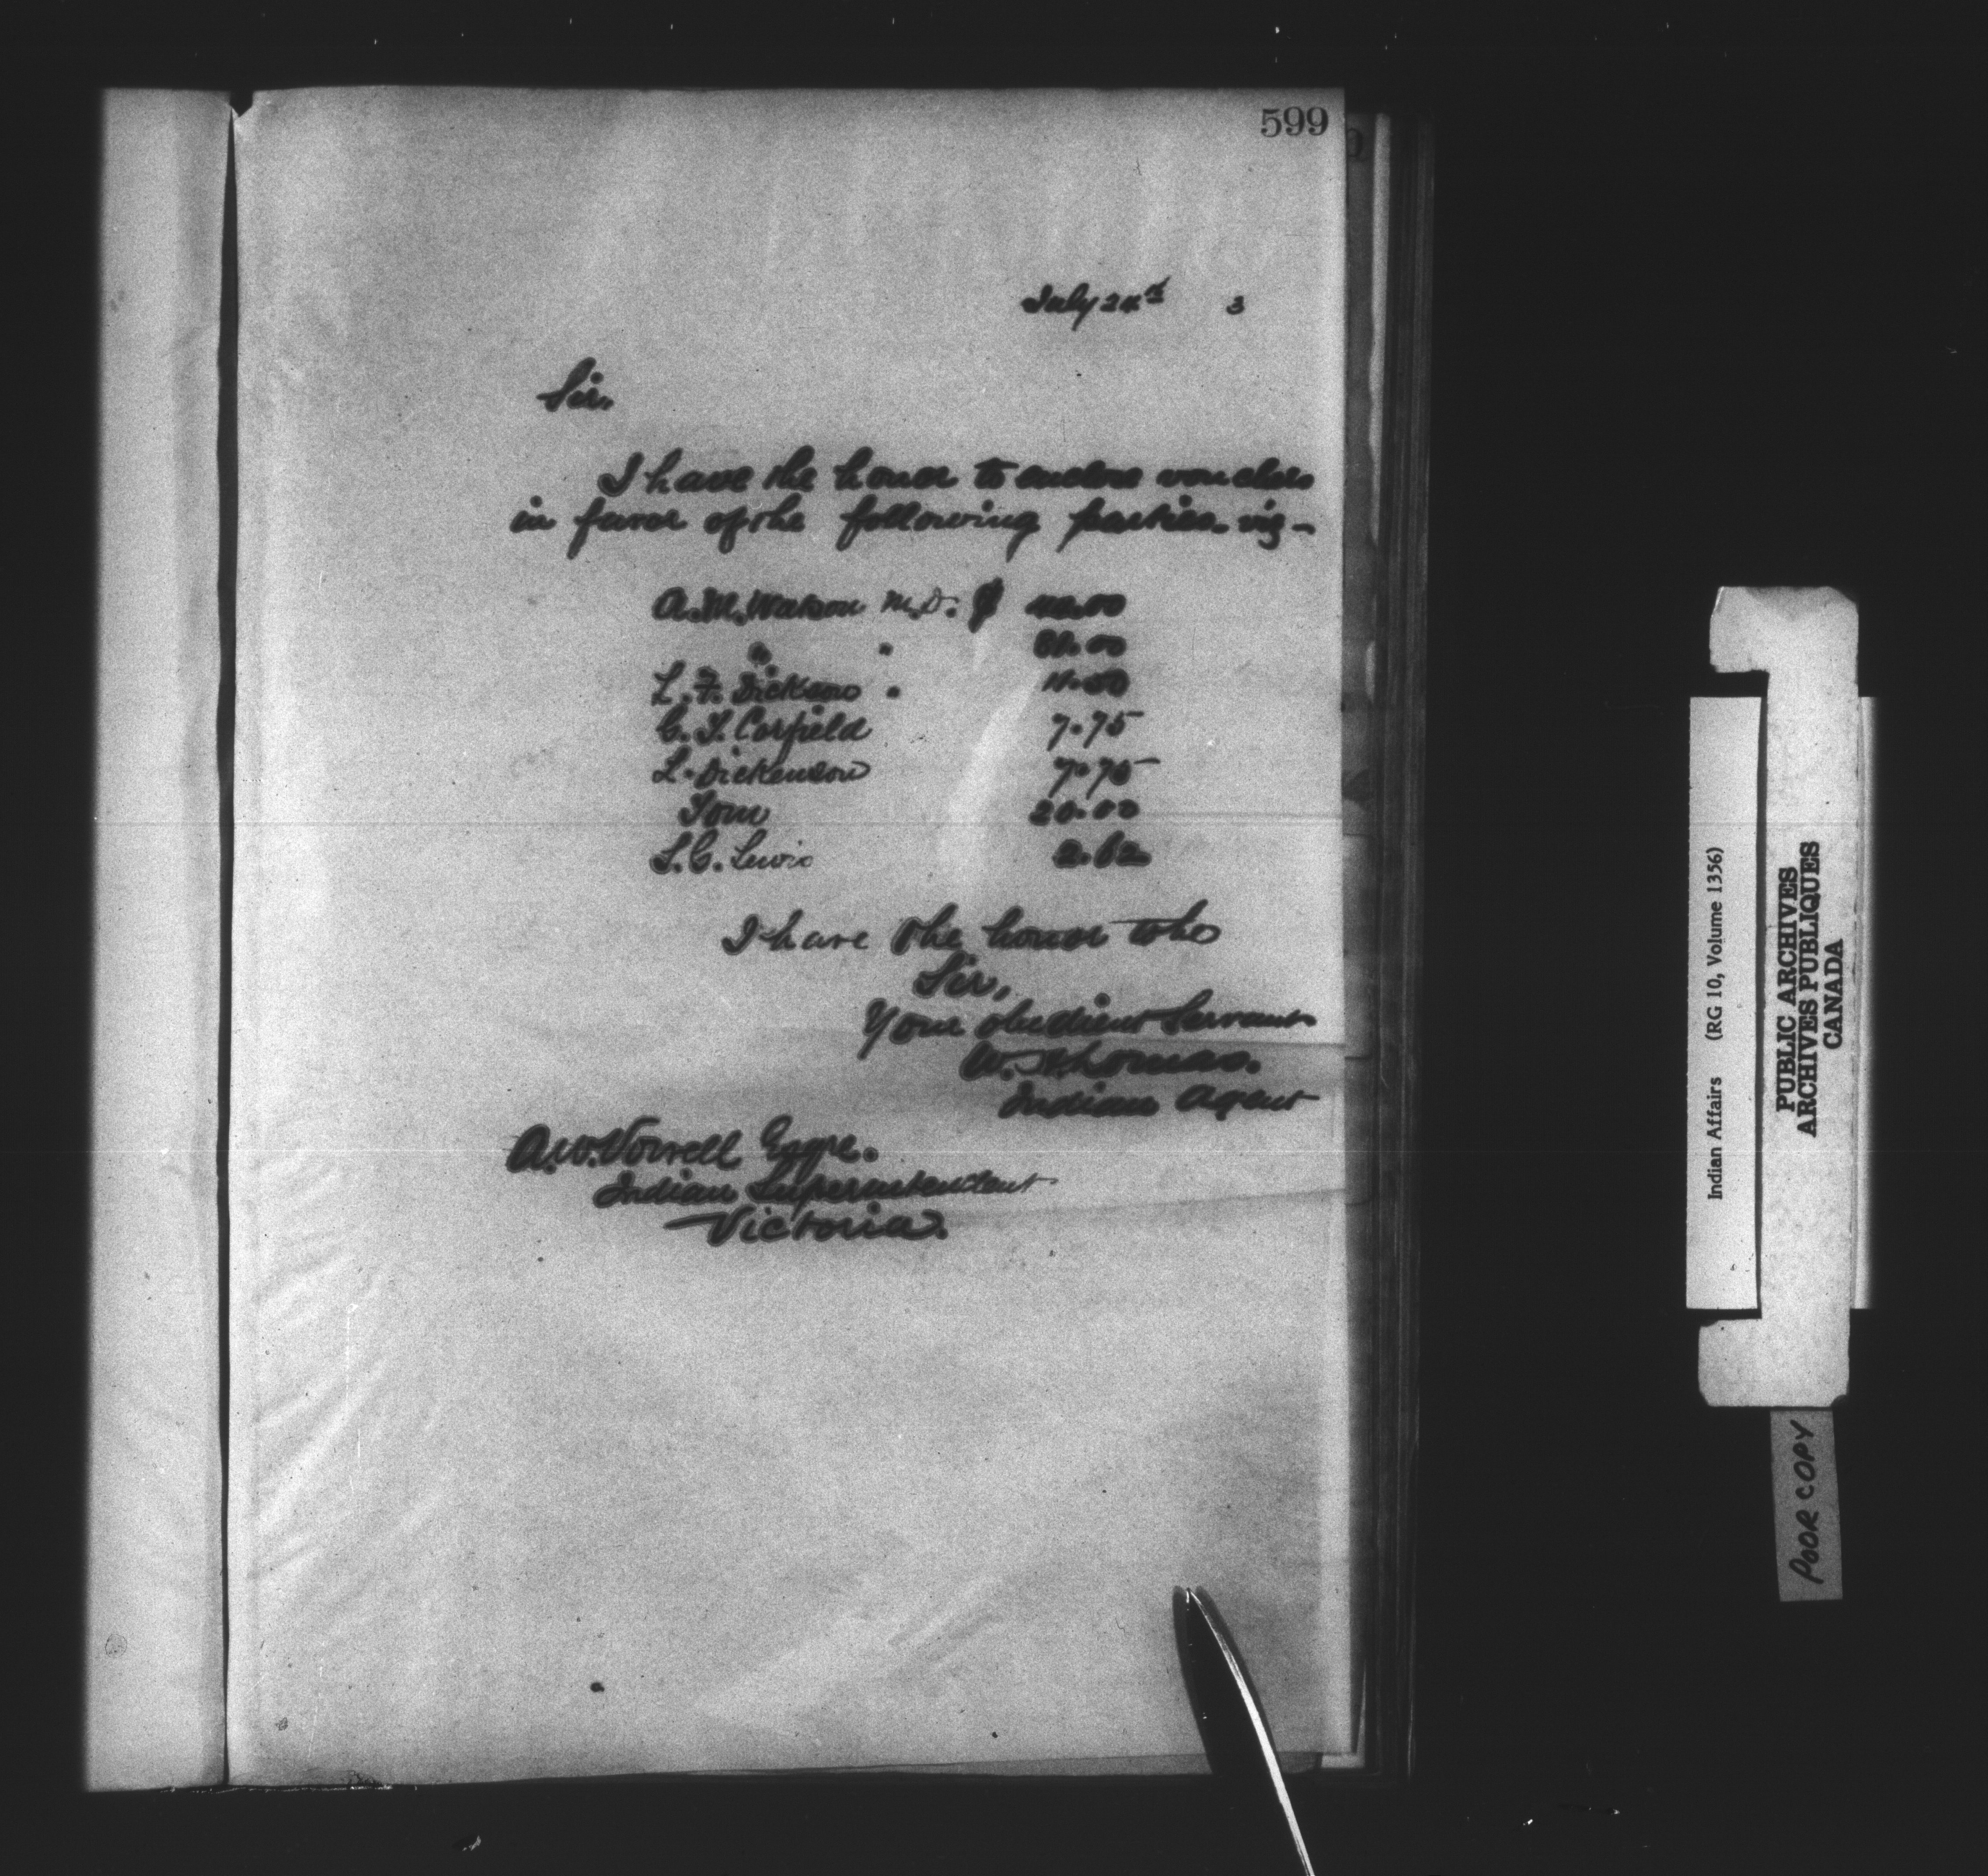 599
July 24th 3
Sir,
I have the honor to enclose vouchers
in favor of the following parties. viz-
A.M. Watson M.D. $ 40.00
" " 00
L. F. Dickson " 11.00
C. T. Corfield 7.75
L. Dickenson 7.75
Tom 20.00
L. G. Lewis 2.62
I have the honor to be
Sir,
Your obedient Servant
W. H. Lomas.
Indian Agent
A.W. Vowell Esqre.
Indian Superintendent
Victoria.
Indian Affairs (RG 10, Volume 1356)
PUBLIC ARCHIVES
ARCHIVES PUBLIQUES
CANADA
POOR COPY